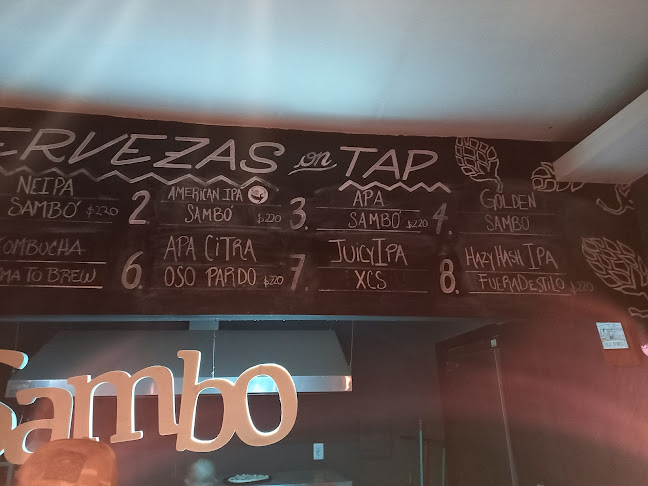 ERVEZAS on TAP
NEIPA
SAMBÓ $220
2. AMERICAN IPA
SAMBÓ $220
3. APA
SAMBÓ $220
4. GOLDEN
SAMBO
KOMBUCHA
MA TO BREW
6. APA CiTRA
OSO PARDO $220
7. JUICY IPA
XCS
8. HAZY HASH IPA
FUERADESTILO $220
Sambo